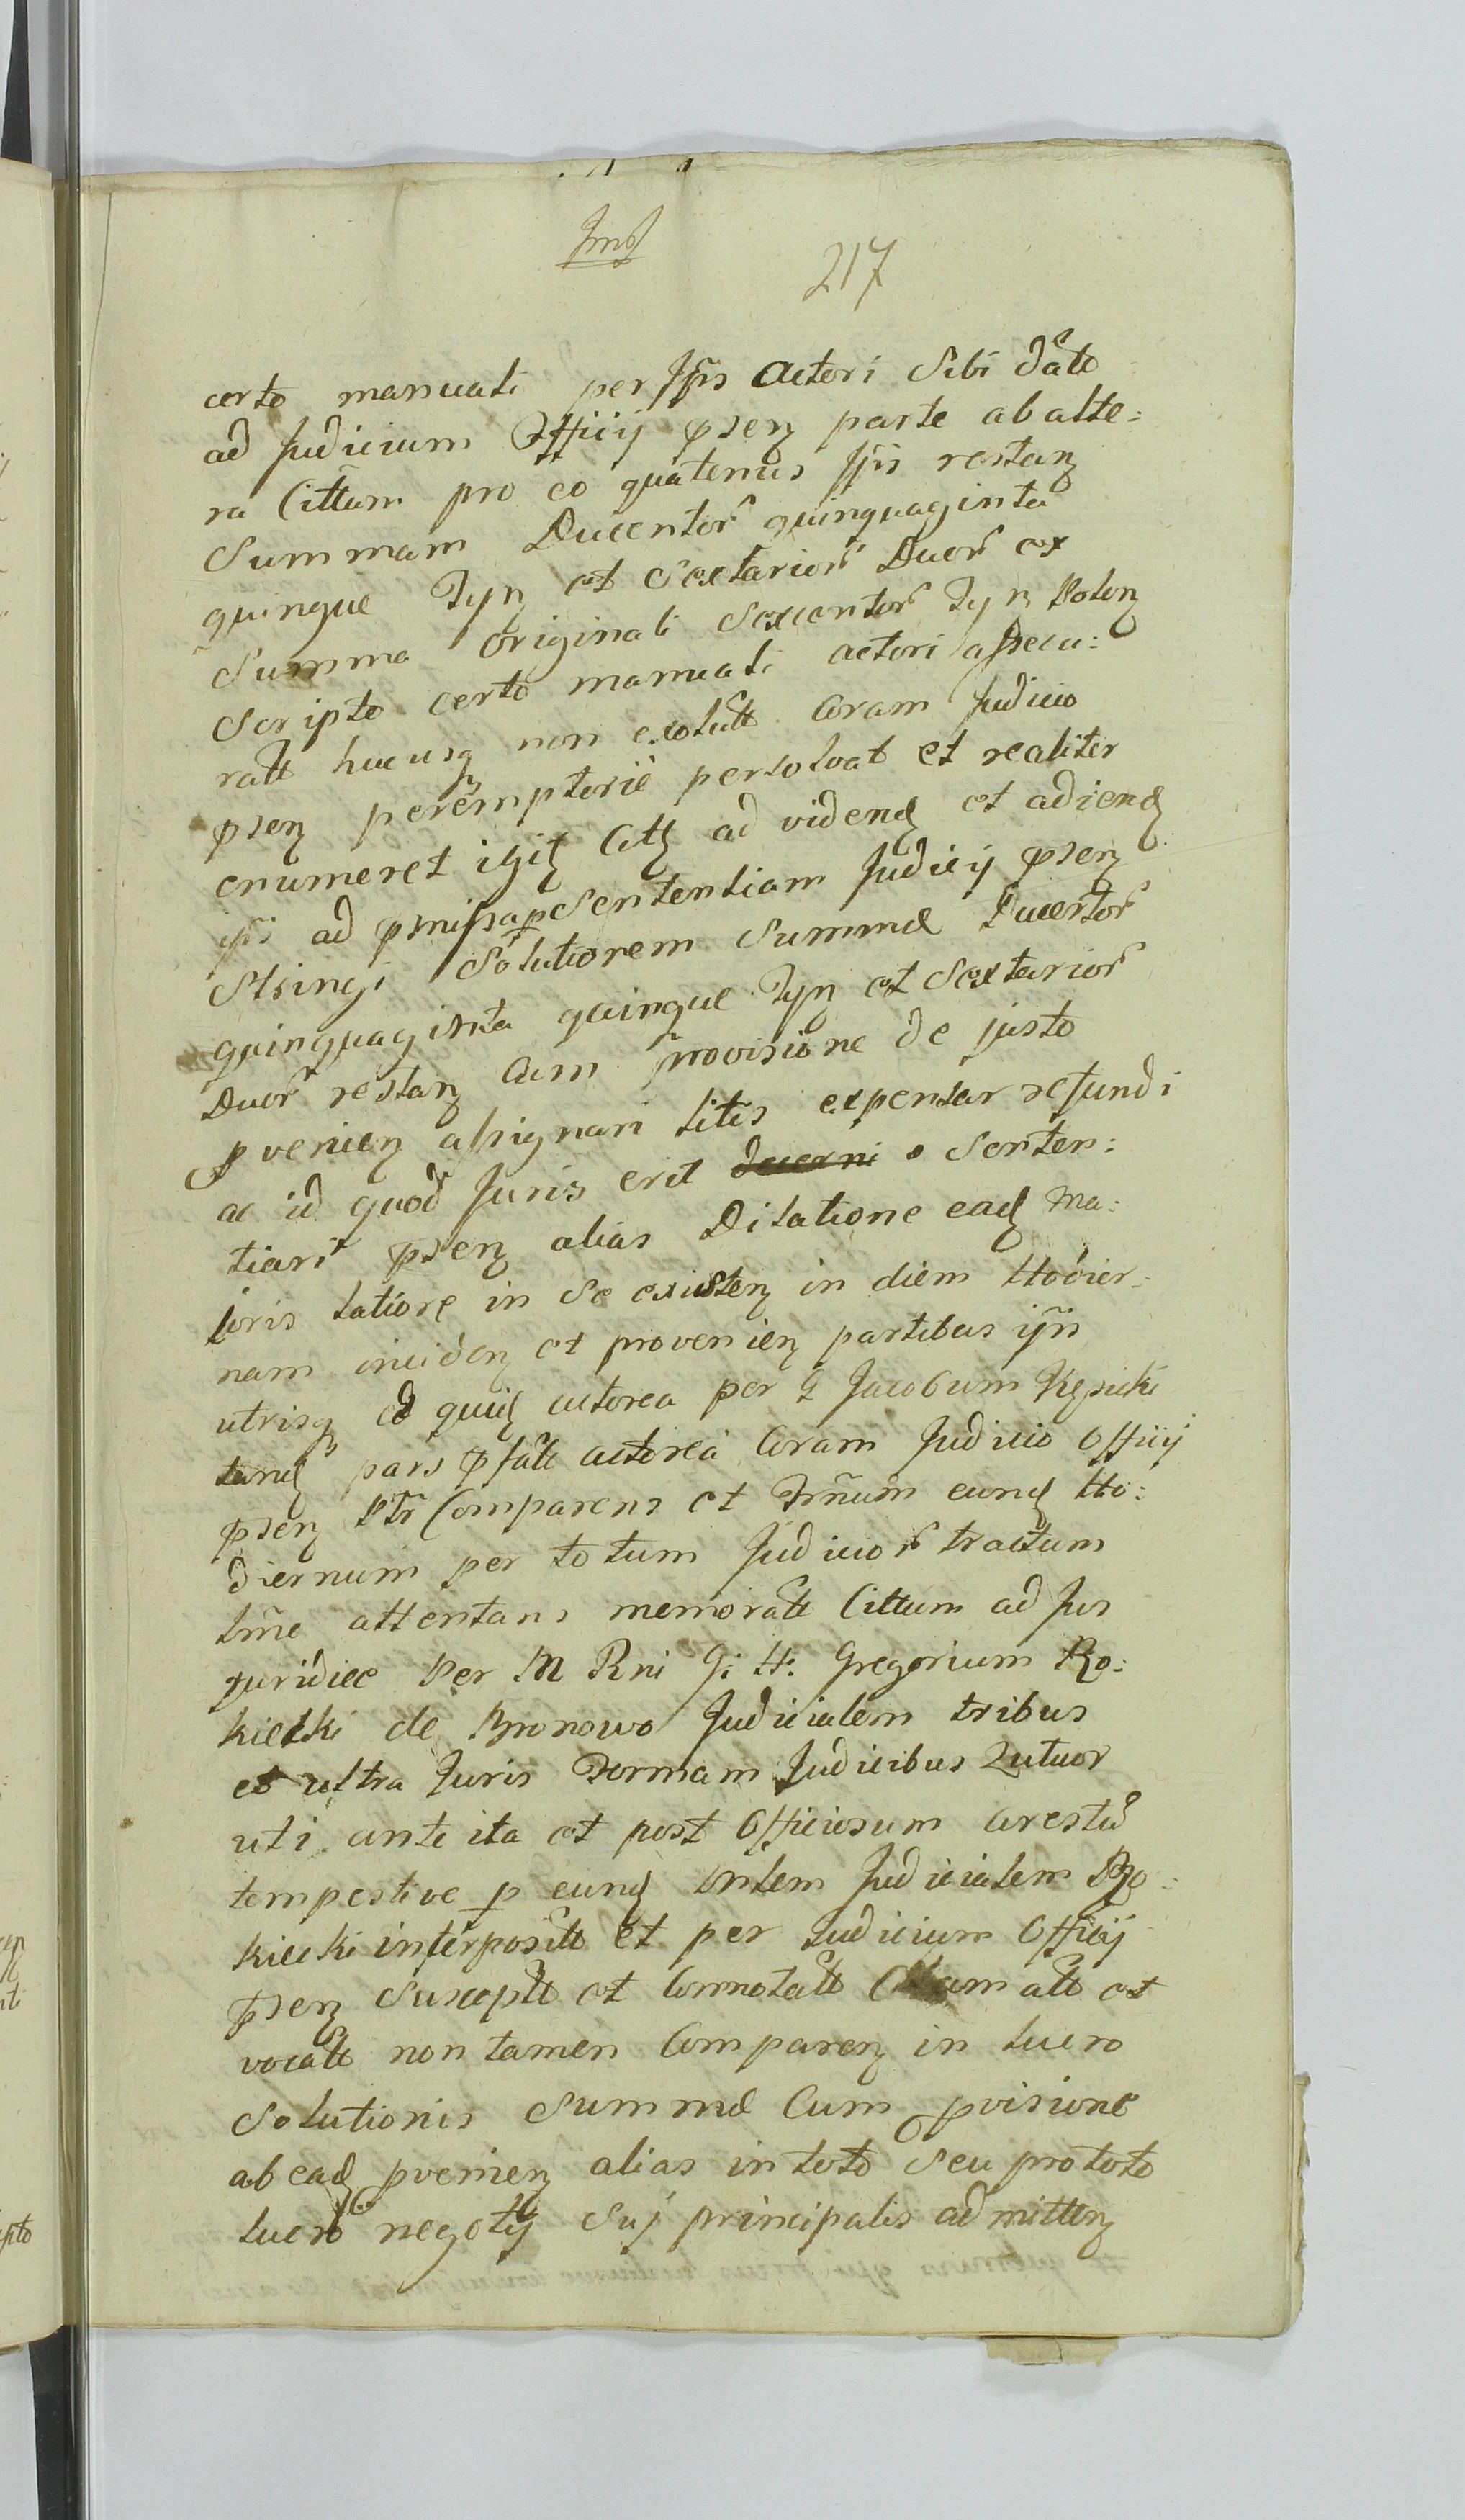 217
certo manuali per Ipis Actori Sibi dato
ad Judicium Officij psen parte ab alte:
ra Cittum pro eo quatenus Ipis restan
Summam Ducentor quinquaginta
quinque Tyn et Sextarior Duor ex
Summa originali Sexcentor Tyn Polon
Scripto certo manuali actori assecu:
ratt hucusq non exolutt Coram Judicio
psen peremptorie persolvat et realiter
enumeret igit Citt ad videnđ et adiend
ipi ad pmissa p Sententiam Judicij psen
Stringi Solutionem Summæ Ducentor
quinquaginta quinque Tyn et Sextarior
Duor restan Cum provisione de justo
pvenien assignari litis expensar refundi
ac id quod Juris erit decerni Senten:
tiari psen alias Dilatione ead Ma:
ioris latiore in Se existen in diem Hodier-
nam inciden et provenien partibus ijn
utrisq et quid actorea per G Jacobum Kęsicki
tand pars pfatt actorea Coram Judicio Officij
psen Ptr Comparens et Trnum eund Ho:
diernum per totum Judicior tractum
lme attentans memoratt Cittum ad Jus
Juridice Per M Rni G: H. Gregorium Ro:
kicki de Bronowo Judicialem tribus
et ultra Juris Formam Judicibus Qutuor
uti ante ita et post Officiosum arestu
tempestive p eund Intem Judicialem Ro:
kicki interpositt et per Judicium Officij
psen Susceptt et Connotatt Clamatt et
vocatt non tamen Comparen in lucro
Solutionis Summæ Cum pvisione
ab ead pvenien alias in toto Seu pro toto
lucro negotij Suj principalis admitten